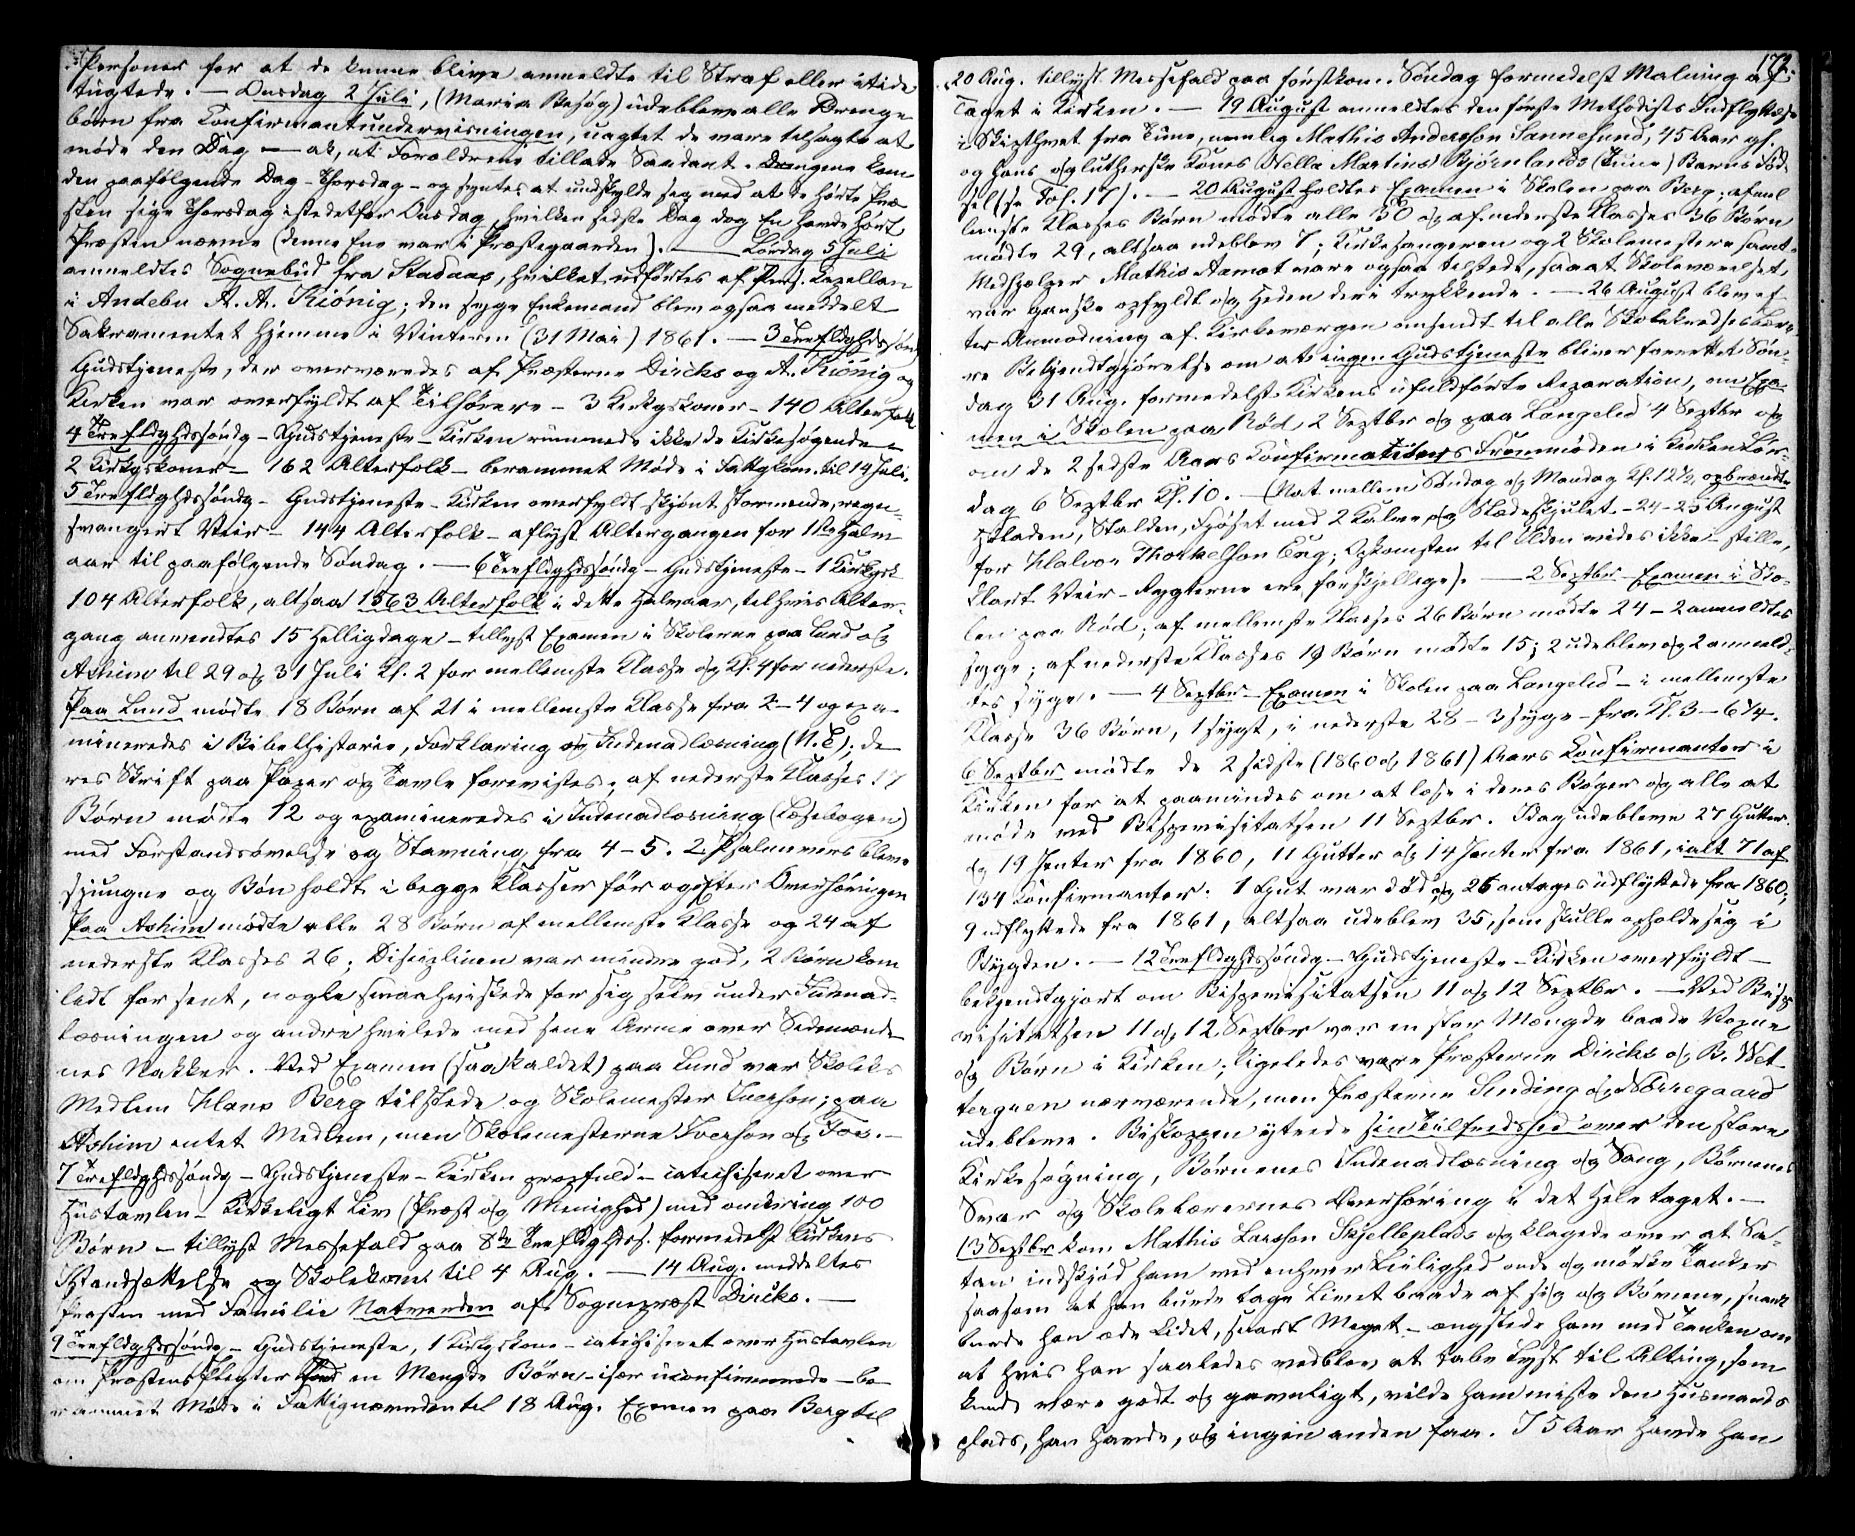 Personer for at de kunne blive anmeldte til Straf eller itide
tugtede. — Onsdag 2 Juli, (Maria Besøg) udebleve alle Drenge
børn fra Confirmantundervisningen, uagtet de vare tilsagte at
møde den Dag — ak, at Forældrene tillade Saadant. Drengene kom
den paafølgende Dag – Thorsdag – og syntes at undskylde sig med at de hørte Præ
sten sige Thorsdag istedetfor Onsdag, hvilken sidste Dag dog En havde hørt
Præsten nævne (denne Ene var i Præstegaarden). — Lørdag 5 Juli
anmeldtes Sognebud fra Stadaas, hvilket udførtes af Pers. Kapellan
i Andebu A. A. Kiönig; den syge Enkemand blev ogsaa meddelt
Sakramentet hjemme i Vinteren (31 Mai) 1861. — 3 Trefldghdssønd
Gudstjeneste, der overværedes af Præsterne Dircks og A. Kiönig og
Kirken var overfyldt af Tilhørere – 3 Kirkgskoner – 140 Alterfolk
4 Trefldghdssøndg – Gudstjeneste – Kirken rummede ikke de Kirkesøgende –
2 Kirkgskoner – 162 Alterfolk – berammet Møde i Fattgkom. til 14 Juli.
5 Trefldghdssøndg – Gudstjeneste – Kirken overfyldt skjønt stormende, regn-
svangert Veir – 144 Alterfolk – aflyst Altergangen for 1ste Halv
aar til paafølgende Søndag. — 6 Trefldghdssøndg – Gudstjeneste – 1 Kirkgsk
104 Alterfolk, altsaa 1563 Alterfolk i dette Halvaar, til hvis Alter-
gang anvendtes 15 Helligdage – tillyst Examen i Skolerne paa Lund og
Ashim til 29 og 31 Juli Kl. 2 for mellemste Klasse og Kl. 4 for nederste.
Paa Lund mødte 18 Børn af 21 i mellemste Klasse fra 2–4 og exa-
mineredes i Bibelhistorie, Forklaring og Indenadlæsning (N. T.); de
res Skrift paa Papir og Tavle forevistes; af nederste Klasses 17
Børn mødte 12 og examineredes i Indenadlæsning (Læsebogen)
med Forstandsøvelse og Stavning fra 4–5. 2 Psalmevers bleve
sjungne og Bøn holdt i begge Klasser før og efter Overhøringen
Paa Ashim mødte alle 28 Børn af mellemste Klasse og 24 af
nederste Klasses 26; Disciplinen var mindre god, 2 Børn kom
lidt for sent, nogle smaahviskede for sig selv under Indenad-
læsningen og andre hvilede med sine Arme over Sidemænde
nes Nakker. Ved Examen (saa kaldet) paa Lund var Skoleks
Medlem Hans Berg tilstede og Skolemester Iverson; paa
Ashim intet Medlem, men Skolemesterne Iverson og Foe. —
7 Trefldghdssøndg – Gudstjeneste – Kirken propfuld – catechiseret over
Hustavlen – Kirkeligt Liv (Præst og Menighed) med omkring 100
Børn – tillyst Messefald paa 8de Trefldighdss. formedelst Kirkens
Istandsættelse og Skolekom. til 4 Aug. — 14 Aug. meddeltes
Præsten med Familie Natverden af Sognepræst Dircks. —
9 Trefldghdssøndg – Gudstjeneste, 1 Kirkgskone – catechiseret over Hustavlen
om Præstens Pligter med en Mængde Børn – især uconfirmerede – be
rammet Møde i Fattignævnden til 18 Aug. Examen paa Berg til
172.
20 Aug. tillyst Messefald paa førstkom. Søndag formedelst Malning af
Taget i Kirken. — 19 August anmeldtes den første Methodists Indflyttelse
i Skiptvet fra Tune, nemlig Mathis Anderssøn Sannesund, 45 Aar gl.
og hans lutherske Kones Nella Martins Bjørnlands (Tune) Barns Fød-
sel (se Fol. 17). — 20 August holdtes Examen i Skolen paa Berg; af mel
lemste Klasses Børn mødte alle 30 og af nederste Klasses 36 Børn
mødte 29, altsaa udeblev 7; Kirkesangeren og 2 Skolemestere samt
Medhjælper Mathis Aamot vare ogsaa tilstede, saa at Skoleværelset
var ganske opfyldt og Heden deri trykkende. — 26 August blev ef
ter Anmodning af Kirkeværgen omsendt til alle Skolekredses Læ
re Bekjendtgjørelse om at ingen Gudstjeneste bliver forrettet Søn-
dag 31 Aug. formedelst Kirkens ufuldførte Reparation, om Exa-
men i Skolen paa Rød 2 Septbr og paa Langelid 4 Septbr og
om de 2 sidste Aars Confirmationers Fremmøden i Kirken Lør-
dag 6 Septbr Kl. 10. — (Nat mellem Søndag og Mandag Kl. 12½ opbrændte
Laden, Stalden, Fjøset med 2 Kalve og Slædeskjulet – 24–25 August
for Halvor Thorkelsøn Eng; Opkomsten til Ilden vides ikke – stille,
klart Veir – Rygterne ere forskjellige). — 2 Septbr Examen i Sko-
len paa Rød; af mellemste Klasses 26 Børn mødte 24 – 2 anmeldtes
syge; af nederste Klasses 19 Børn mødte 15; 2 udeblev og 2 anmeld-
tes syge. — 4 Septbr Examen i Skolen paa Langelid – i mellemste
Klasse 36 Børn, 1 sygt, i nederste 28 – 3 syge – fra Kl. 3–6¼.
6 Septbr mødte de 2 sidste (1860 og 1861) Aars Confirmanter i
Kirken for at paamindes om at læse i deres Bøger og alle at
møde ved Bispevisitatsen 11 Septbr. Idag udebleve 27 Gutter
og 19 Jenter fra 1860, 11 Gutter og 14 Jenter fra 1861, ialt 71 af
134 Confirmanter. 1 Gut var død og 26 antages udflyttede fra 1860;
9 udflyttede fra 1861, altsaa udeblev 35, som skulle opholde sig i
Bygden. — 12 Trefldghdssøndg – Gudstjeneste – Kirken overfyldt –
bekjendtgjort om Bispevisitatsen 11 og 12 Septbr. — Ved Bispe
visitatsen 11 og 12 Septbr var en stor Mængde baade Voxne
og Børn i Kirken; ligeledes vare Præsterne Dircks og B. Wet
tergreen nærværende, men Præsterne Sinding og Nørregaard
udebleve. Biskoppen ytrede sin Tilfredshed over den store
Kirkesøgning, Børnenes Indenadlæsning og Sang, Børnenes
Svar og Skolelærernes Overhøring i det Hele taget. —
13 Septbr kom Mathis Larssøn Skjelleplads og klagede over at Sa-
tan indskjød ham ved enhver Leilighed onde og mørke Tanker
saasom at han burde tage Livet baade af sig og Børnene, snart
burde han æde Lidet, snart Meget – ængstede ham med Tanken om
at hvis han saaledes vedblev at tabe Lyst til Alting, som
kunde være godt og gavnligt, vilde han miste den Husmands
plads, han havde, og ingen anden faa. I 5 Aar havde han